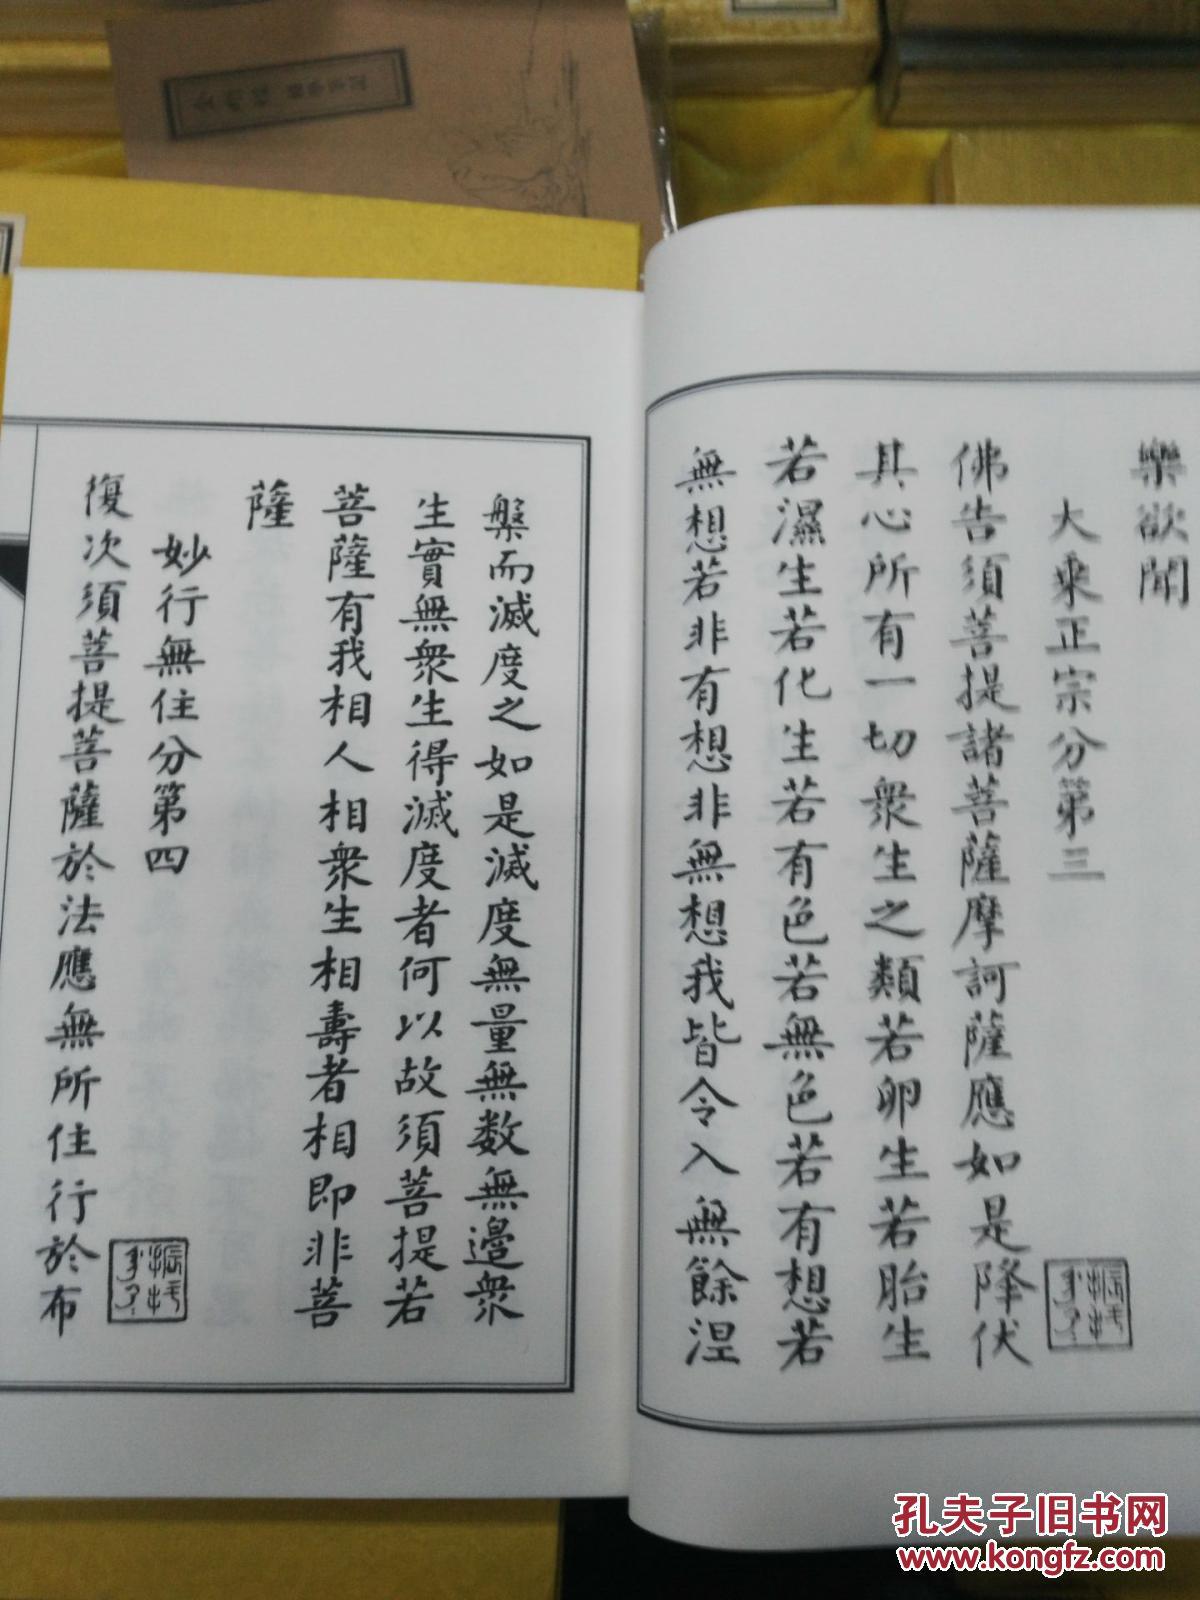 樂欲聞
大乘正宗分第三
佛告須菩提諸菩薩摩訶薩應如是降伏
其心所有一切眾生之類若卵生若胎生
若濕生若化生若有色若無色若有想若
無想若非有想非無想我皆令入無餘涅
槃而滅度之如是滅度無量無数無邊眾
生實無眾生得滅度者何以故須菩提若
菩薩有我相人相眾生相壽者相即非菩
薩
妙行無住分第四
復次須菩提菩薩於法應無所住行於布
孔夫子旧书网
www.kongfz.com